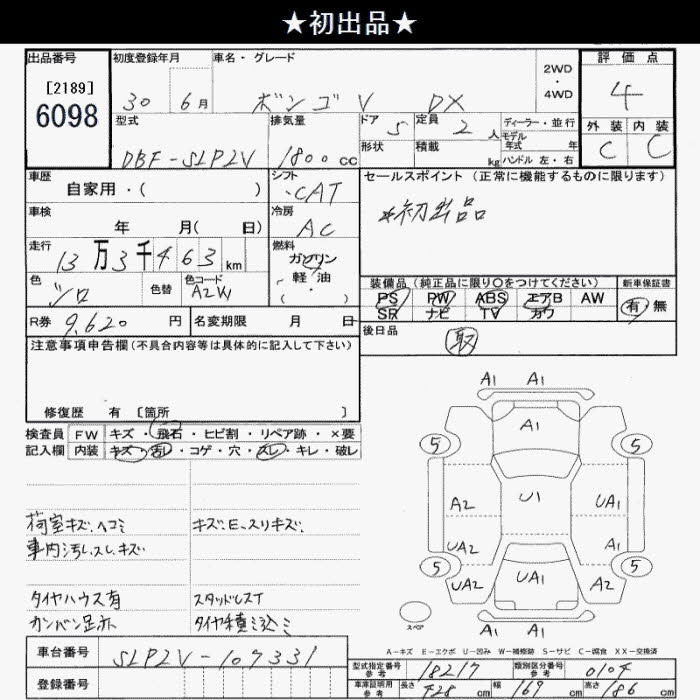 ★初出品★
出品番号
[2189]
6098
初度登録年月
30 6月
車名・グレード
ボンゴV DX
2WD
・
4WD
評価点
4
型式
DBF-SLP2V
排気量
1800cc
ドア 5
形状
定員 2人
積載 kg
ディーラー・並行
モデル年式 年
ハンドル 左・右
外装 内装
C C
車歴
自家用・( )
シフト
CAT
セールスポイント (正常に機能するものに限ります)
*初出品
車検
年 月( 日)
冷房
AC
走行
13万3千463km
燃料
ガソリン
軽油
( ・ )
色
シロ
色替
色コード
A2W
装備品 (純正品に限り○をつけてください)
PS PW ABS エアB AW
SR ナビ TV カワ
新車保証書
有 無
R券 9.620円
名変期限 月 日
後日品
取
注意事項申告欄(不具合内容等は具体的に記入して下さい)
修復歴 有 [箇所 ]
検査員 FW キズ・飛石・ヒビ割・リペア跡・×要
記入欄 内装 キズ・汚レ・コゲ・穴・スレ・キレ・破レ
荷室キズ、ヘコミ
キズ、E、スリキズ、
車内汚レ、スレ、キズ
タイヤハウス有
スタッドレスT
カンバン足赤
タイヤ積ミ込ミ
A1 A1
A1
5 5
A2 U1 UA1
UA2 A1
5 5
UA2 UA1 A2
A1 A1
スペア
A-キズ E-エクボ U-凹み W-補修跡 S-サビ C-腐食 XX-交換済
車台番号 SLP2V-107331
登録番号
型式指定番号 参考 18217
類別区分番号 参考 0104
車庫証明用 参考 長さ 428cm 幅 169cm 高さ 186cm